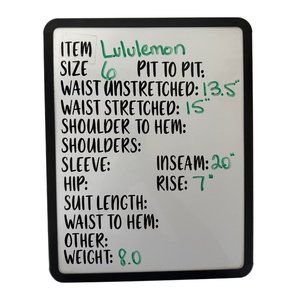 ITEM Lululemon
SIZE 6 PIT TO PIT:
WAIST UNSTRETCHED: 13.5"
WAIST STRETCHED: 15"
SHOULDER TO HEM:
SHOULDERS:
SLEEVE: INSEAM: 20"
HIP: RISE: 7"
SUIT LENGTH:
WAIST TO HEM:
OTHER:
WEIGHT: 8.0